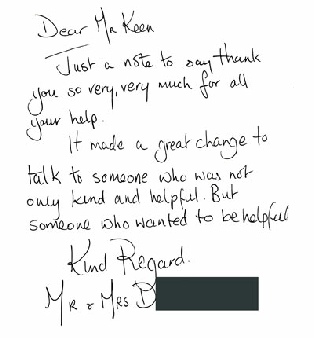 Dear Mr Keen
Just a note to say thank
you so very, very much for all
your help.
It made a great change to
talk to someone who was not
only kind and helpful. But
someone who wanted to be helpful
Kind Regard.
Mr & Mrs D